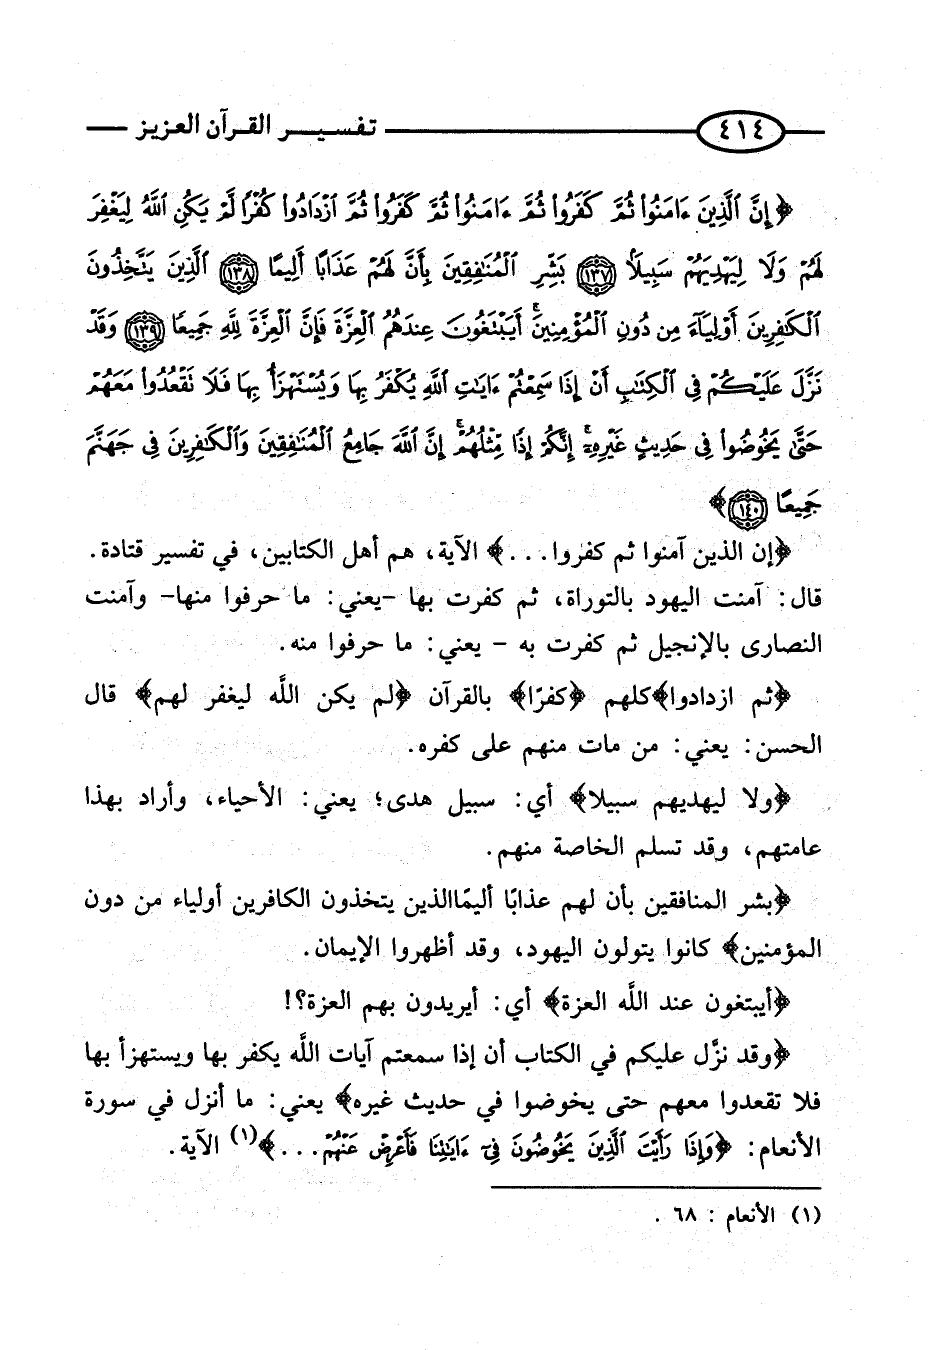 ٤١٤ تفسير القرآن العزيز
﴿إِنَّ ٱلَّذِينَ ءَامَنُوا۟ ثُمَّ كَفَرُوا۟ ثُمَّ ءَامَنُوا۟ ثُمَّ كَفَرُوا۟ ثُمَّ ٱزْدَادُوا۟ كُفْرًا لَّمْ يَكُنِ ٱللَّهُ لِيَغْفِرَ
لَهُمْ وَلَا لِيَهْدِيَهُمْ سَبِيلًا ١٣٧ بَشِّرِ ٱلْمُنَٰفِقِينَ بِأَنَّ لَهُمْ عَذَابًا أَلِيمًا ١٣٨ ٱلَّذِينَ يَتَّخِذُونَ
ٱلْكَٰفِرِينَ أَوْلِيَآءَ مِن دُونِ ٱلْمُؤْمِنِينَ ۚ أَيَبْتَغُونَ عِندَهُمُ ٱلْعِزَّةَ فَإِنَّ ٱلْعِزَّةَ لِلَّهِ جَمِيعًا ١٣٩ وَقَدْ
نَزَّلَ عَلَيْكُمْ فِى ٱلْكِتَٰبِ أَنْ إِذَا سَمِعْتُمْ ءَايَٰتِ ٱللَّهِ يُكْفَرُ بِهَا وَيُسْتَهْزَأُ بِهَا فَلَا نَقْعُدُوا۟ مَعَهُمْ
حَتَّىٰ يَخُوضُوا۟ فِى حَدِيثٍ غَيْرِهِۦٓ ۚ إِنَّكُمْ إِذًا مِّثْلُهُمْ ۗ إِنَّ ٱللَّهَ جَامِعُ ٱلْمُنَٰفِقِينَ وَٱلْكَٰفِرِينَ فِى جَهَنَّمَ
جَمِيعًا ١٤٠﴾
﴿إن الذين آمنوا ثم كفروا...﴾ الآية، هم أهل الكتابين، في تفسير قتادة.
قال: آمنت اليهود بالتوراة، ثم كفرت بها -يعني: ما حرفوا منها- وآمنت
النصارى بالإنجيل ثم كفرت به - يعني: ما حرفوا منه.
﴿ثم ازدادوا﴾كلهم ﴿كفرًا﴾ بالقرآن ﴿لم يكن اللَّه ليغفر لهم﴾ قال
الحسن: يعني: من مات منهم على كفره.
﴿ولا ليهديهم سبيلا﴾ أي: سبيل هدى؛ يعني: الأحياء، وأراد بهذا
عامتهم، وقد تسلم الخاصة منهم.
﴿بشر المنافقين بأن لهم عذابًا أليمًاالذين يتخذون الكافرين أولياء من دون
المؤمنين﴾ كانوا يتولون اليهود، وقد أظهروا الإيمان.
﴿أيبتغون عند اللَّه العزة﴾ أي: أيريدون بهم العزة؟!
﴿وقد نزَّل عليكم في الكتاب أن إذا سمعتم آيات اللَّه يكفر بها ويستهزأ بها
فلا تقعدوا معهم حتى يخوضوا في حديث غيره﴾ يعني: ما أنزل في سورة
الأنعام: ﴿وَإِذَا رَأَيْتَ ٱلَّذِينَ يَخُوضُونَ فِىٓ ءَايَٰتِنَا فَأَعْرِضْ عَنْهُمْ...﴾(١) الآية.
(١) الأنعام : ٦٨ .